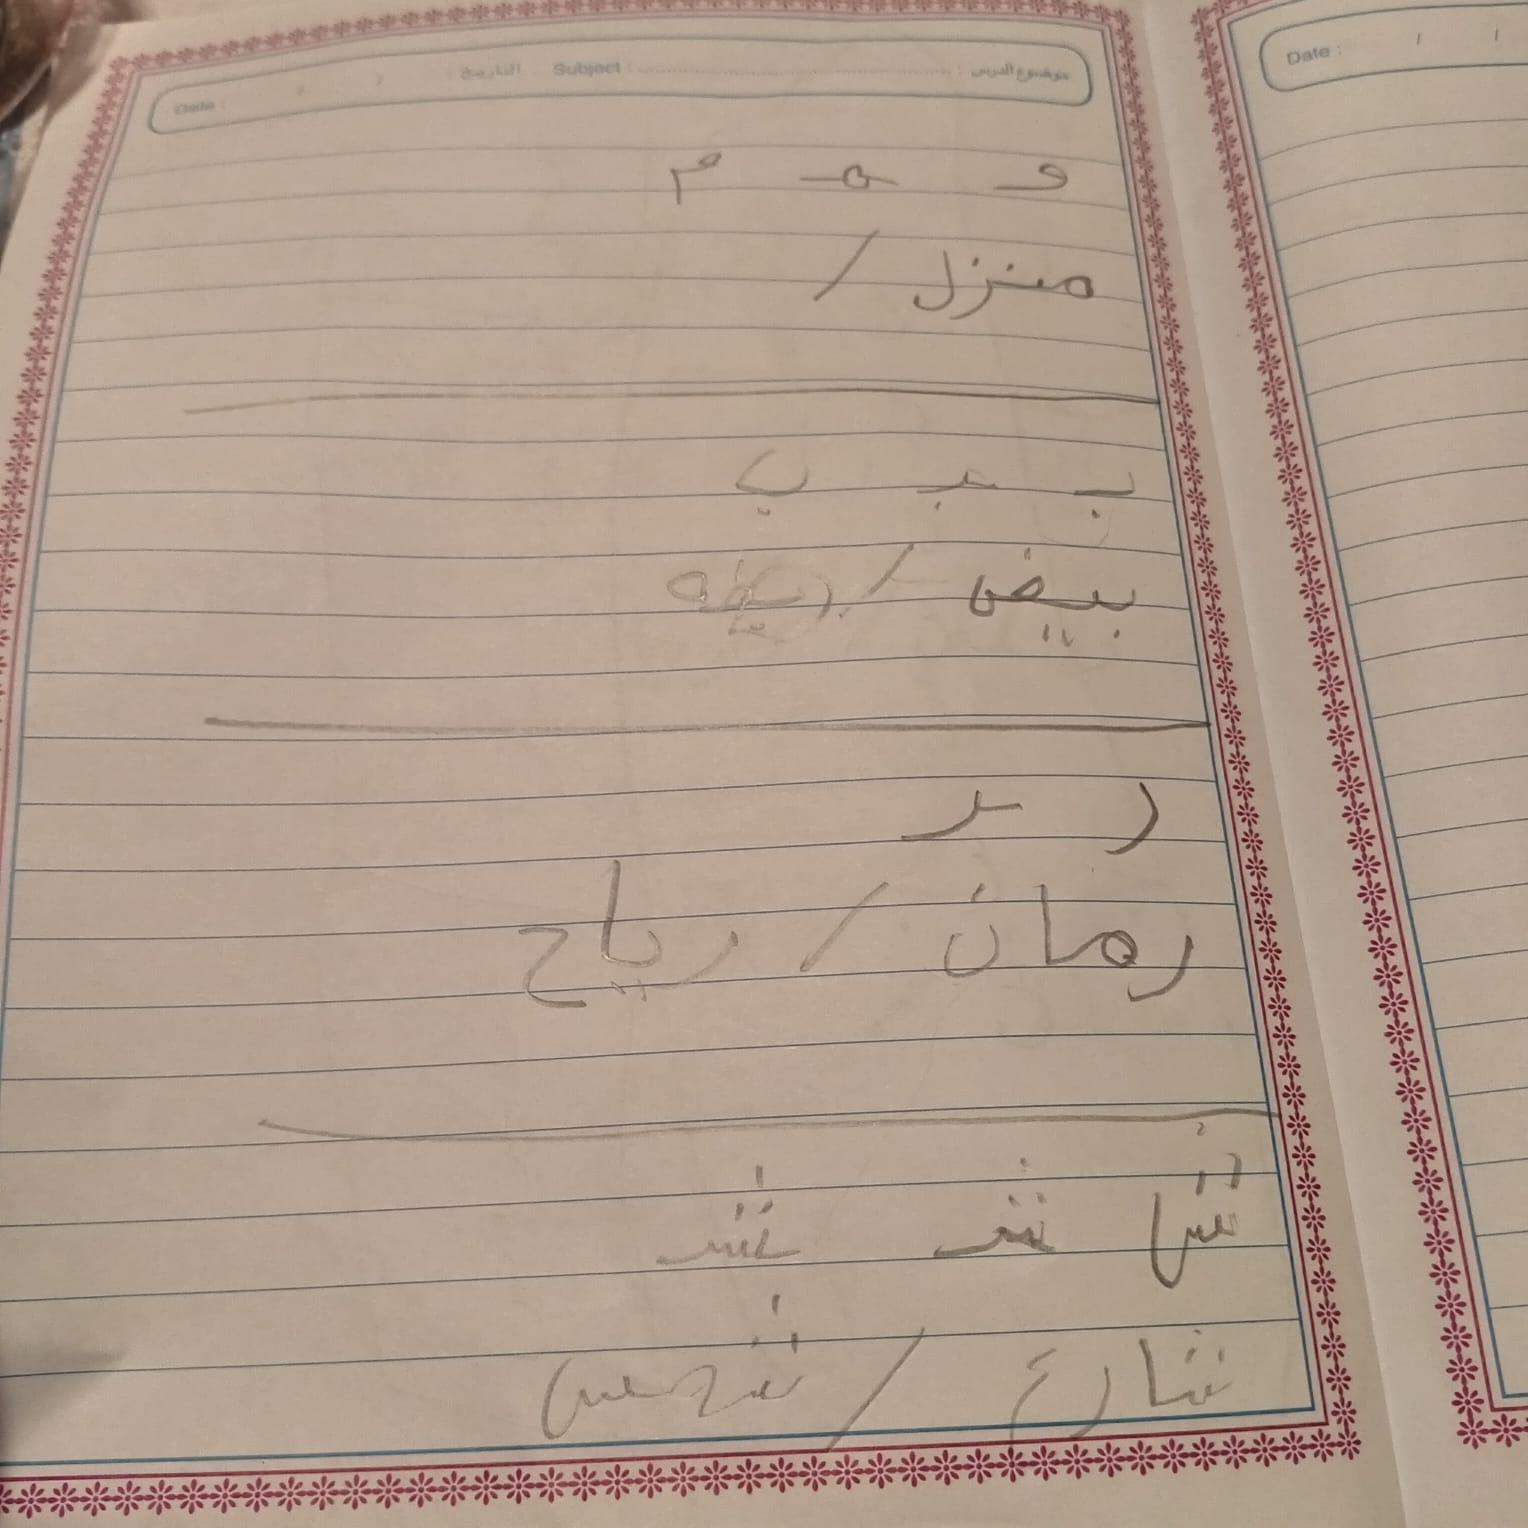 موضوع الدرس : Subject : التاريخ : / / Date :
مـ ـمـ م
منزل /
بـ ـبـ ب
بيض /
ر ـر
رمان / رياح
ش شـ ـشـ
شارع / شمس
Date : / /